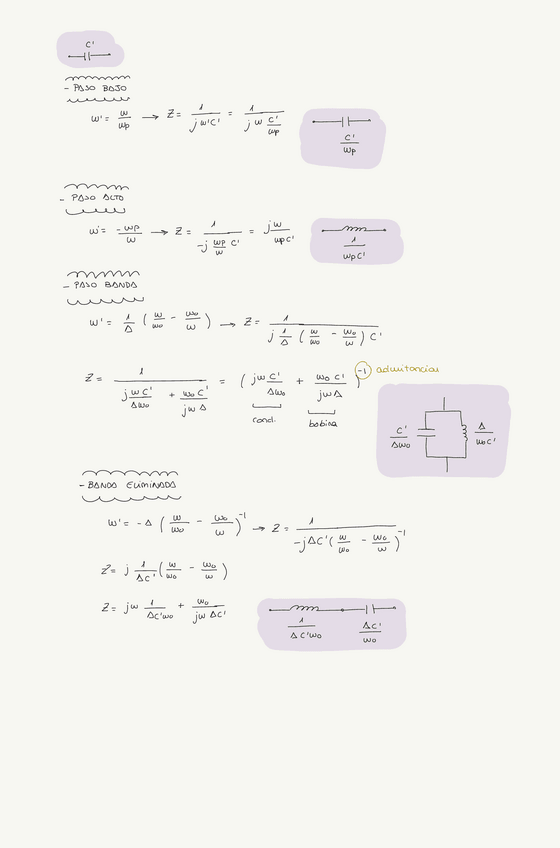 C'
- PASO BAJO
w' = w/wp → Z = 1/(j w'C') = 1/(j w C'/wp)
C'/wp
- PASO ALTO
w' = -wp/w → Z = 1/(-j wp/w C') = jw/(wp C')
1/(wp C')
- PASO BANDA
w' = 1/Δ (w/wo - wo/w) → Z = 1/(j 1/Δ (w/wo - wo/w) C')
Z = 1/(jw C'/(Δwo) + wo C'/(jw Δ)) = (jw C'/(Δwo) + wo C'/(jwΔ))^-1 admitancias
cond. bobina
C'/(Δwo) Δ/(wo C')
- BANDA ELIMINADA
w' = -Δ (w/wo - wo/w)^-1 → Z = 1/(-jΔC' (w/wo - wo/w)^-1)
Z = j 1/(ΔC') (w/wo - wo/w)
Z = jw 1/(ΔC'wo) + wo/(jw ΔC')
1/(ΔC'wo) ΔC'/wo